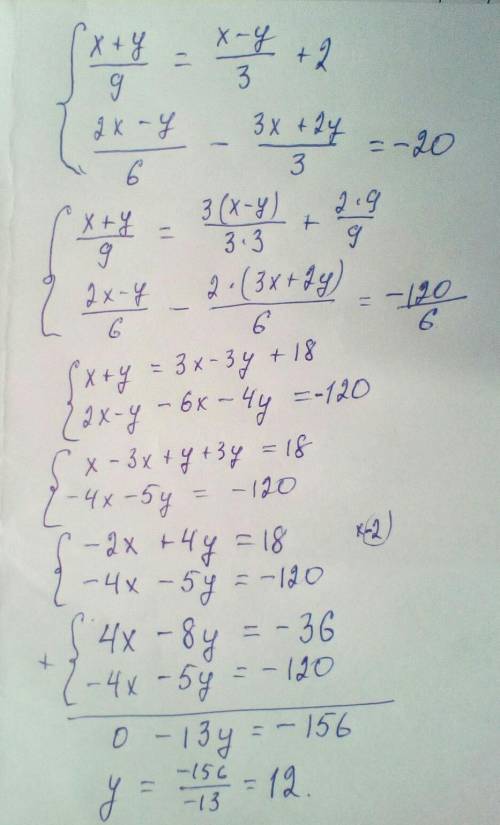 x+y/9 = x-y/3 + 2
2x-y/6 - 3x+2y/3 = -20
x+y/9 = 3(x-y)/3·3 + 2·9/9
2x-y/6 - 2·(3x+2y)/6 = -120/6
x+y = 3x-3y+18
2x-y-6x-4y = -120
x-3x+y+3y = 18
-4x-5y = -120
-2x+4y = 18 x(-2)
-4x-5y = -120
4x-8y = -36
+
-4x-5y = -120
0 -13y = -156
y = -156/-13 = 12.